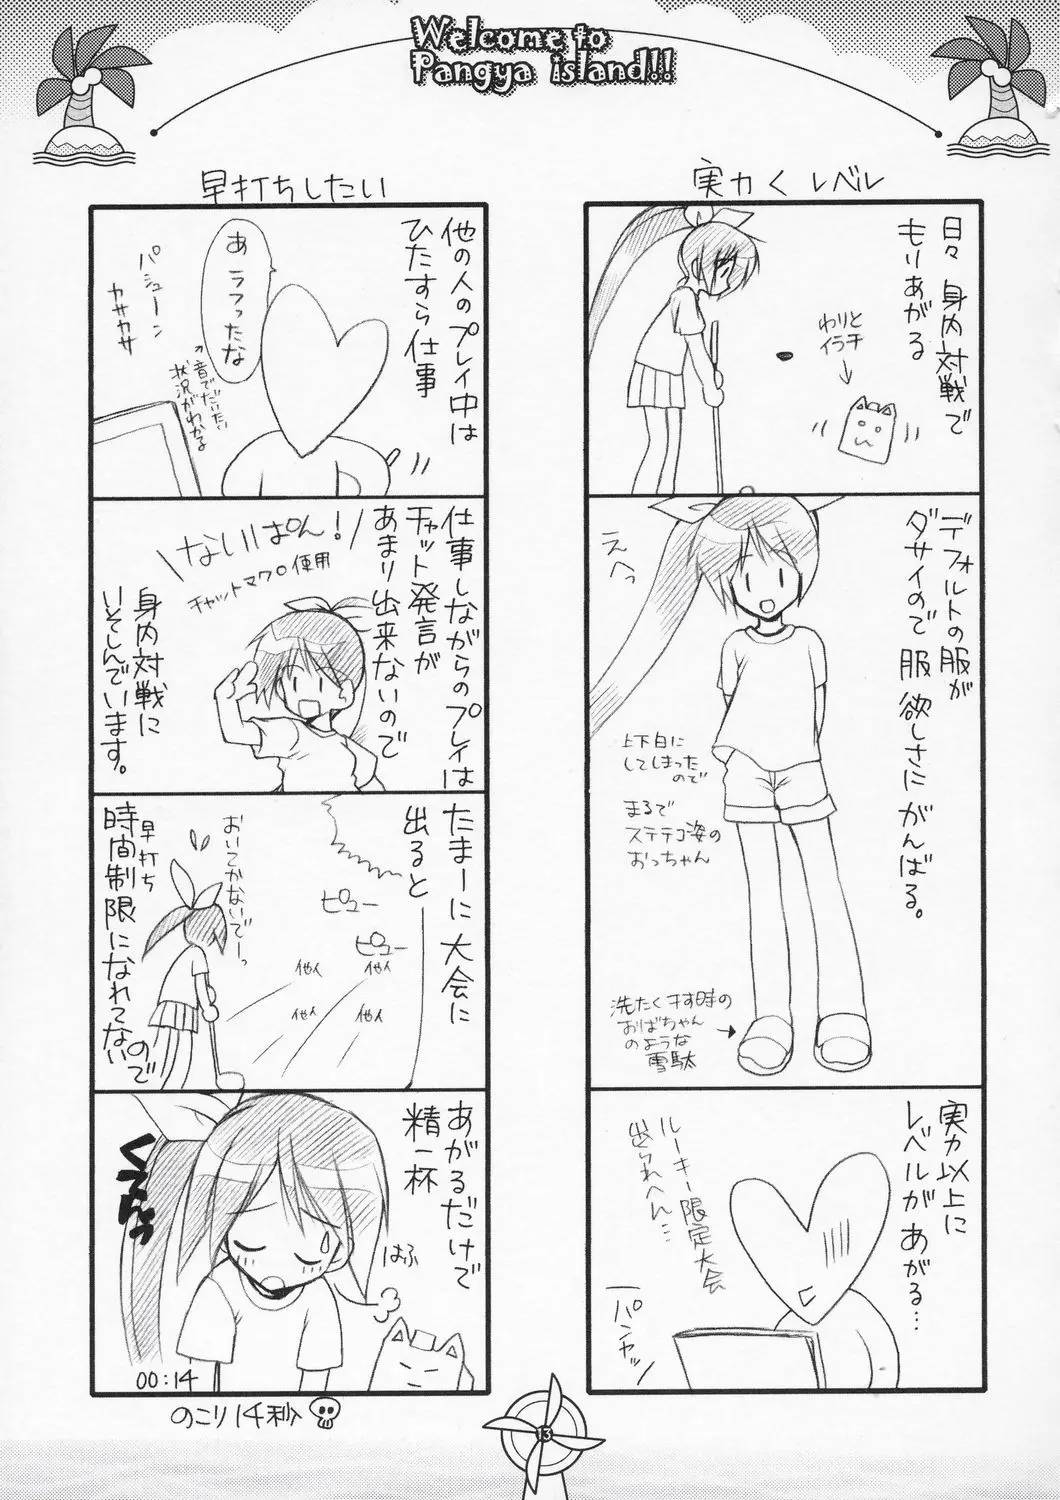 Welcome to
Pangya island!!
実力くレベル
日々 身内対戦で
もりあがる
わりと
イラチ
デフォルトの服が
ダサイので 服 欲しさに がんばる。
えへっ
上下白に
してしまった
ので
まるで
ステテコ姿の
おっちゃん
洗たく干す時の
おばちゃん
のような
雪駄
実力以上に
レベルが あがる…
ルーキー限定大会
出られへん…
パンヤッ
早打ちしたい
他の人のプレイ中は
ひたすら仕事
あ ラフったな
パシューン
カサカサ
↑音でだいたい
状況がわかる
仕事しながらのプレイは
チャット発言が
あまり出来ないので
ないぱん!
チャットマクロ使用
身内対戦に
いそしんでいます。
たまーに 大会に
出ると
ピュー
ピュー
他人
他人
他人
他人
おいてかないでーっ
早打ち
時間制限になれてないので
あがるだけで
精一杯
はふ
00:14
のこり14秒
13